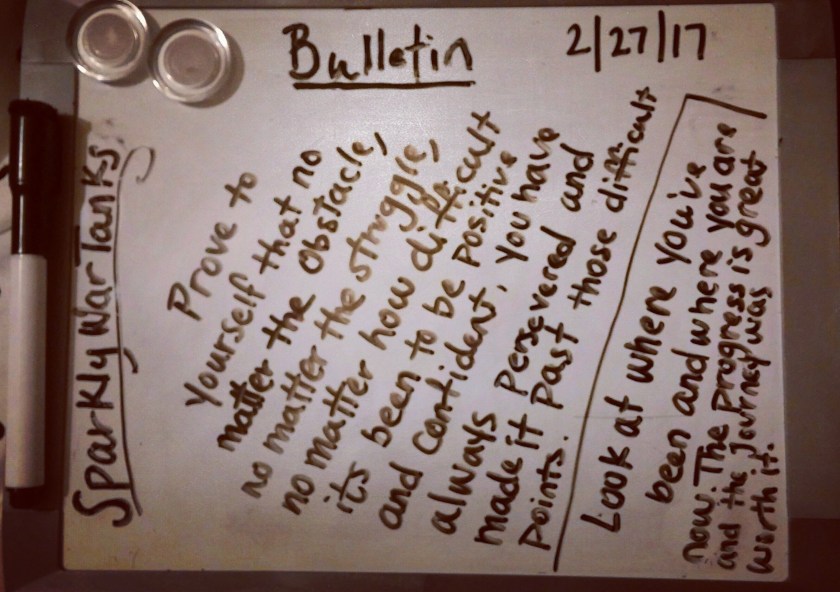 Bulletin
2/27/17
SparklyWarTanks
Prove to
yourself that no
matter the obstacle,
no matter the struggle,
no matter how difficult
its been to be positive
and confident, you have
always persevered and
made it past those difficult
points.
Look at where you've
been and where you are
now. The progress is great
and the journey was
worth it.